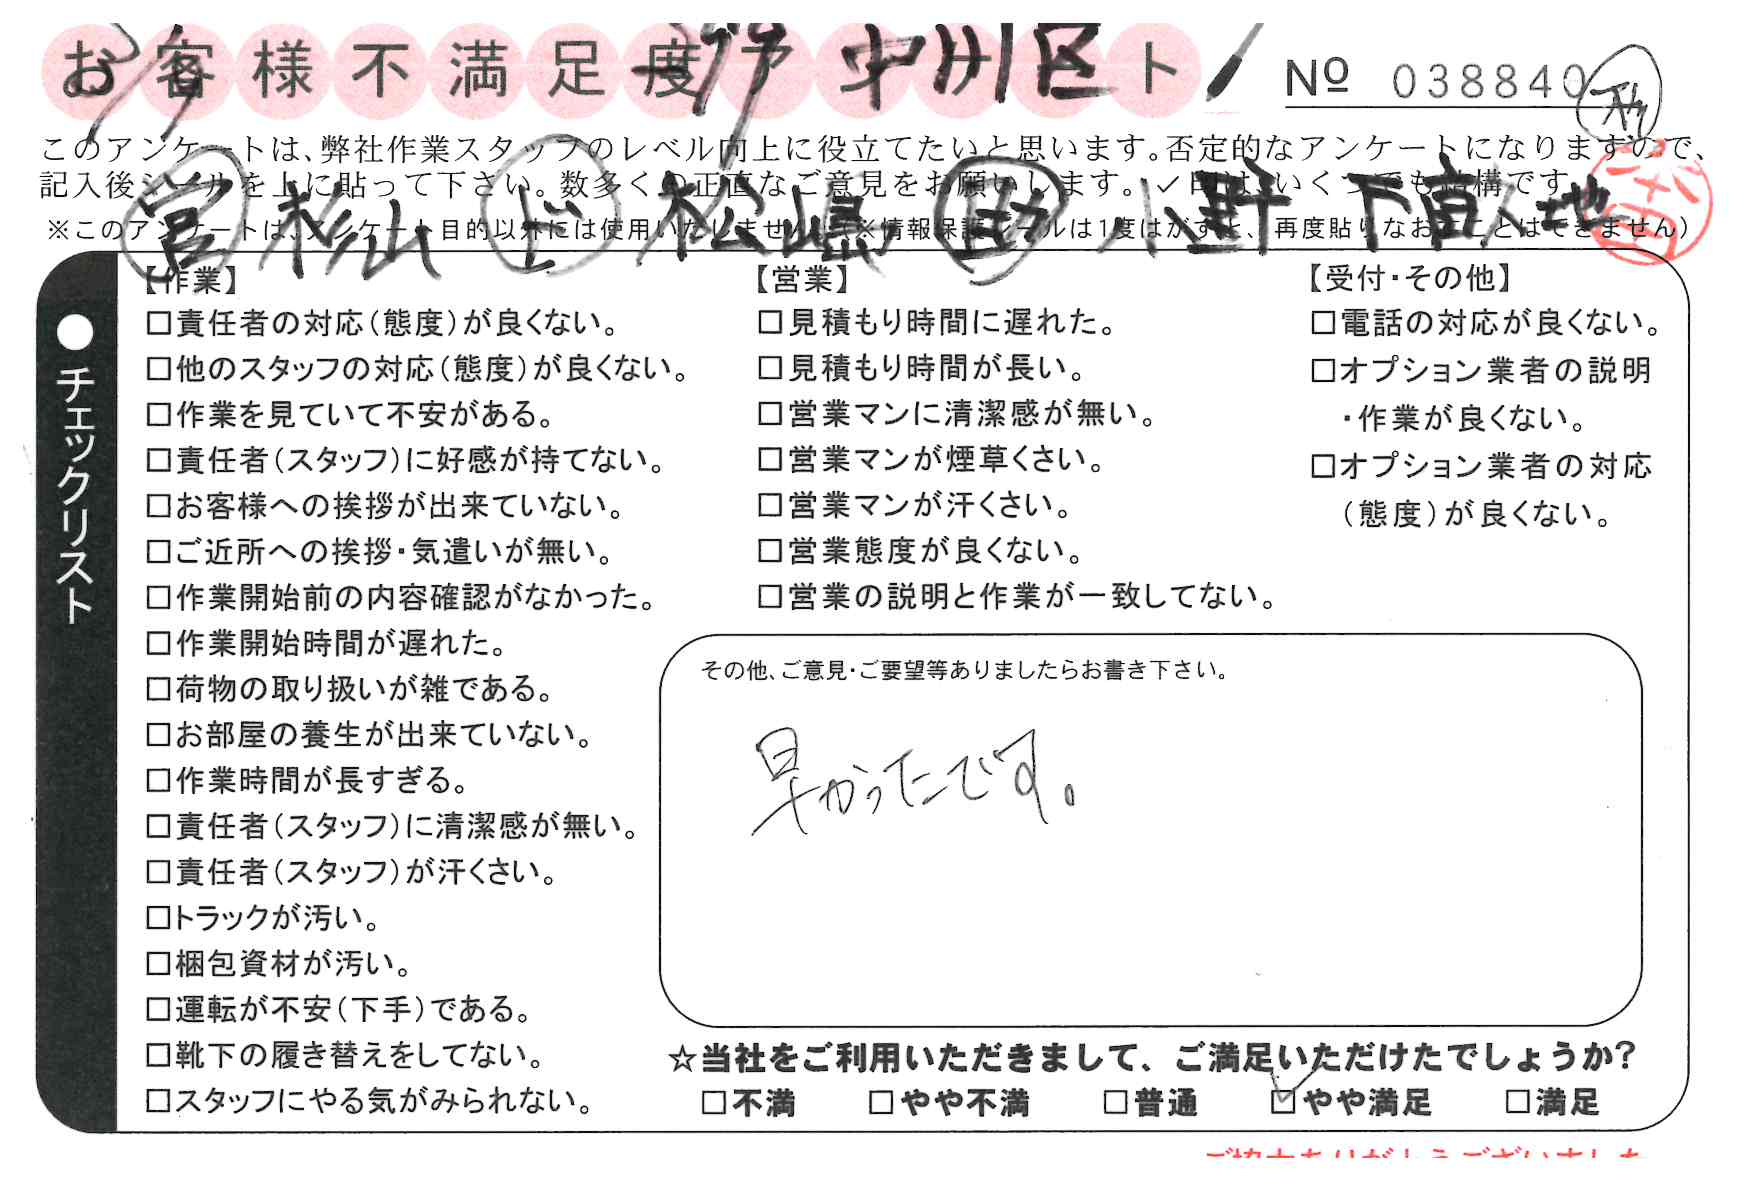 お客様不満足度アンケート
中川区
Nº 038840
このアンケートは、弊社作業スタッフのレベル向上に役立てたいと思います。否定的なアンケートになりますので、
記入後シールを上に貼って下さい。数多くの正直なご意見をお願いします。✓印は、いくつでも結構です。
※このアンケートは、アンケート目的以外には使用いたしません。(※情報保護シールは1度はがすと、再度貼りなおすことはできません)
杉山 松嶋 助 小野 下
●チェックリスト
【作業】
□責任者の対応(態度)が良くない。
□他のスタッフの対応(態度)が良くない。
□作業を見ていて不安がある。
□責任者(スタッフ)に好感が持てない。
□お客様への挨拶が出来ていない。
□ご近所への挨拶・気遣いが無い。
□作業開始前の内容確認がなかった。
□作業開始時間が遅れた。
□荷物の取り扱いが雑である。
□お部屋の養生が出来ていない。
□作業時間が長すぎる。
□責任者(スタッフ)に清潔感が無い。
□責任者(スタッフ)が汗くさい。
□トラックが汚い。
□梱包資材が汚い。
□運転が不安(下手)である。
□靴下の履き替えをしてない。
□スタッフにやる気がみられない。
【営業】
□見積もり時間に遅れた。
□見積もり時間が長い。
□営業マンに清潔感が無い。
□営業マンが煙草くさい。
□営業マンが汗くさい。
□営業態度が良くない。
□営業の説明と作業が一致してない。
【受付・その他】
□電話の対応が良くない。
□オプション業者の説明
・作業が良くない。
□オプション業者の対応
(態度)が良くない。
その他、ご意見・ご要望等ありましたらお書き下さい。
早かったです。
☆当社をご利用いただきまして、ご満足いただけたでしょうか?
□不満 □やや不満 □普通 ☑やや満足 □満足
ご協力ありがとうございました